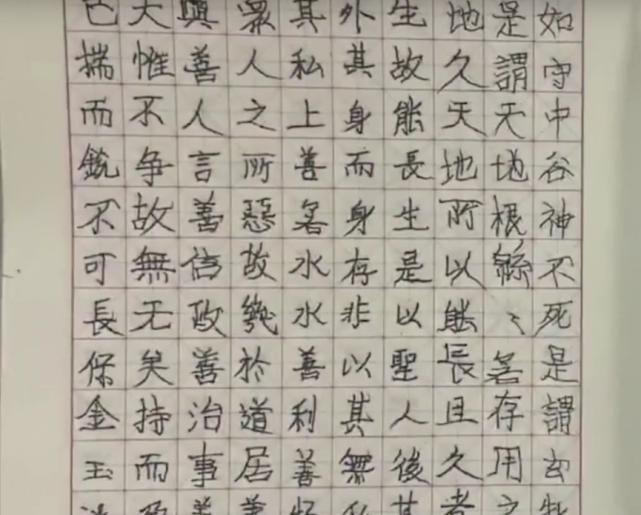 如守中谷神不死是謂玄牝
是謂天地根綿〻若存用之
地久天地所以能長且久者
生故能長生是以聖人後其
外其身而身存非以其無私
其私上善若水水善利善
眾人之所惡故幾於道居善
與善人言善信政善治事善
夫惟不争故無无矣持而盈
已揣而銳不可長保金玉